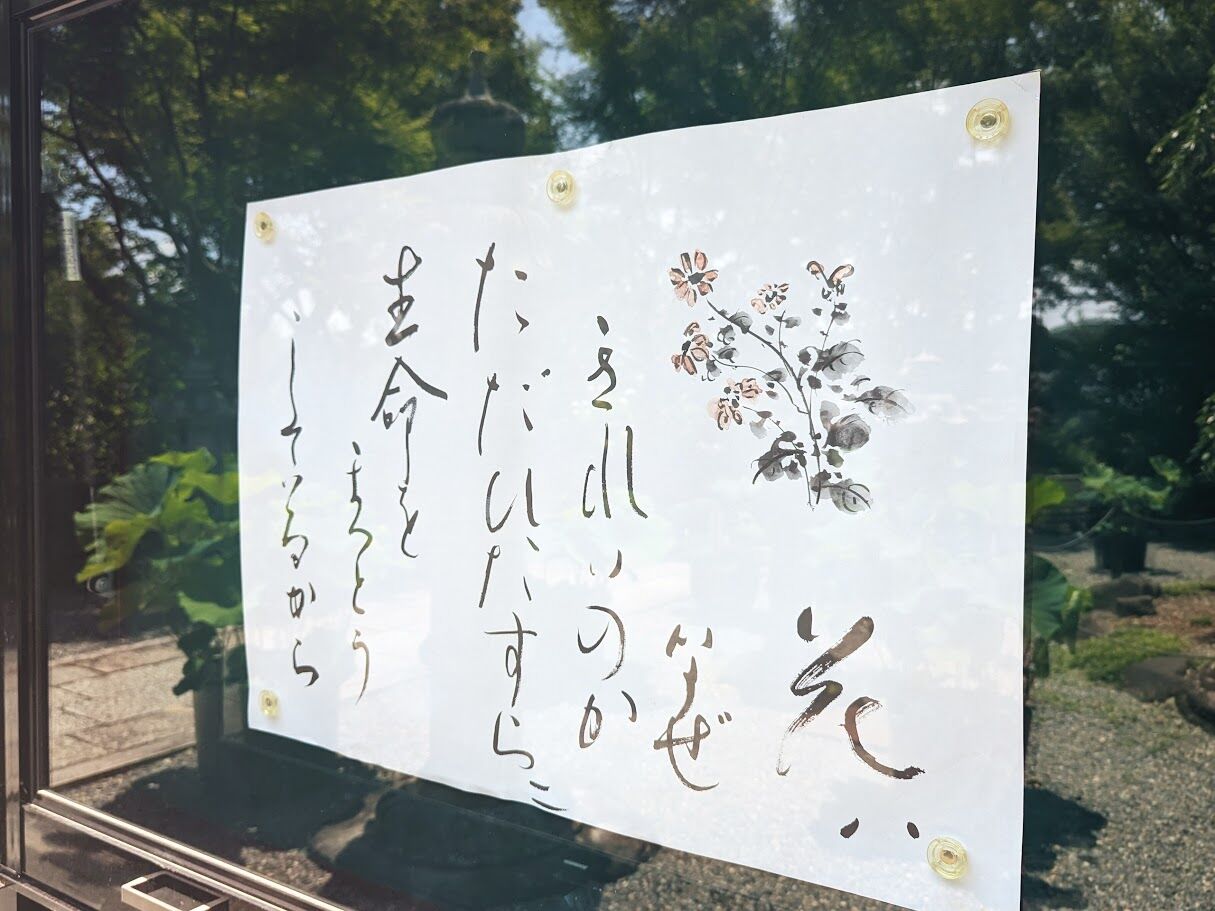 花ハ
なぜ
きれいのか
ただひたすらニ
生命を
まっとう
しているから